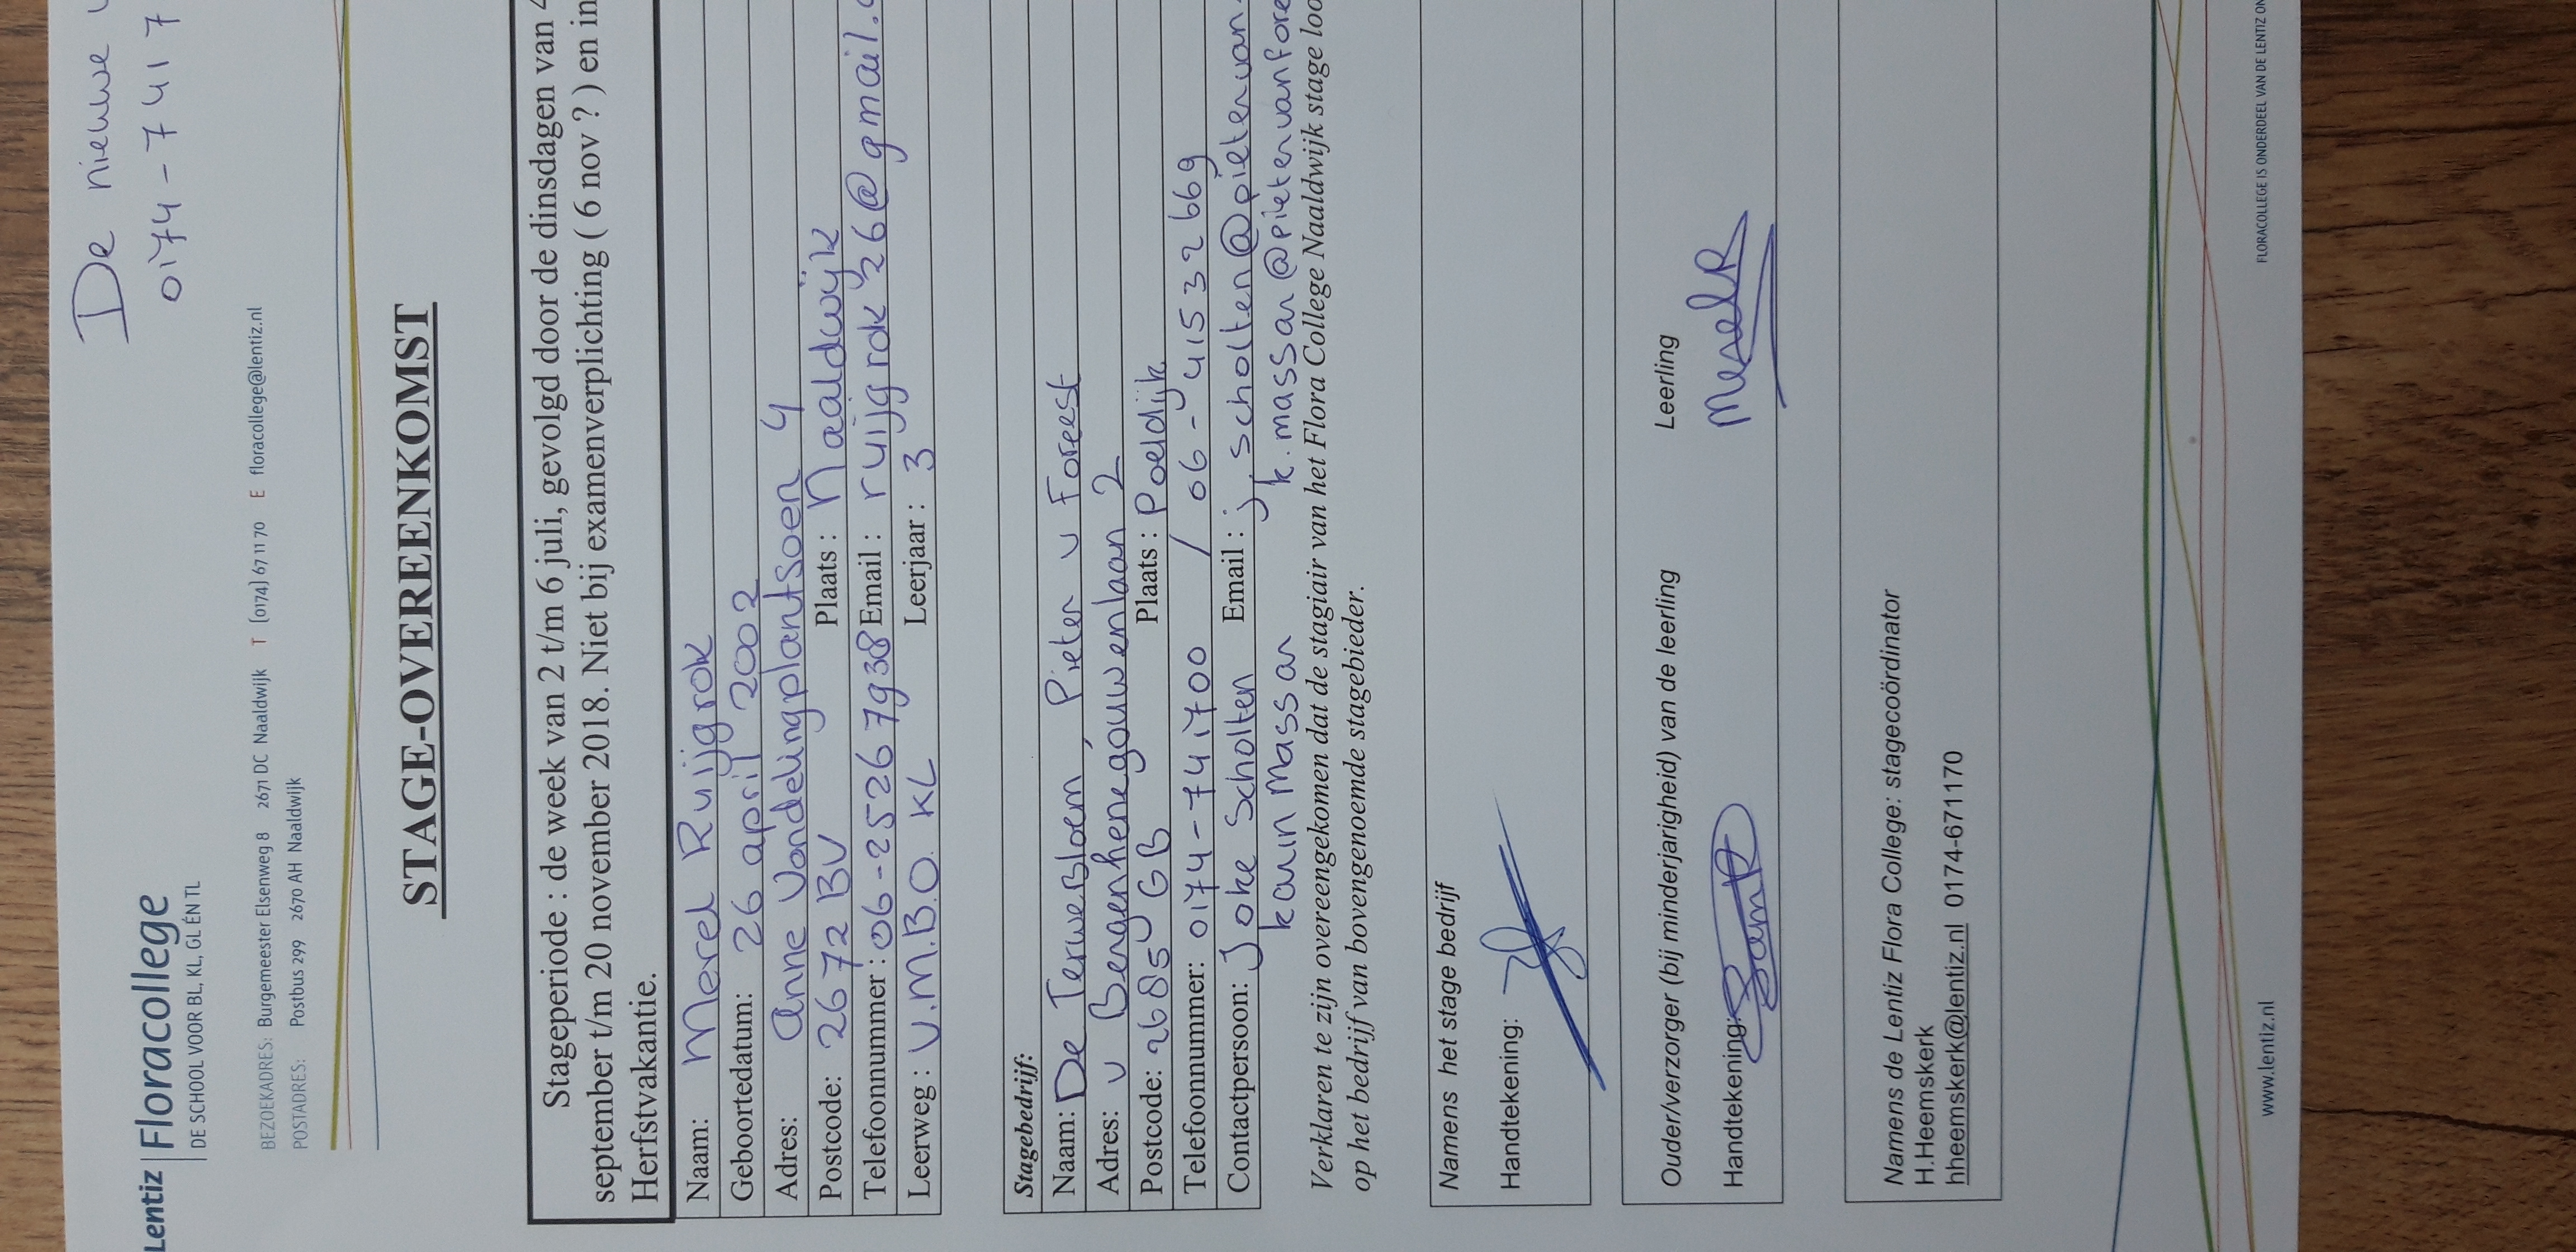 De nieuwe
0174-7417
Lentiz | Floracollege
DE SCHOOL VOOR BL, KL, GL ÉN TL
BEZOEKADRES: Burgemeester Elsenweg 8 2671 DC Naaldwijk T (0174) 67 11 70 E floracollege@lentiz.nl
POSTADRES: Postbus 299 2670 AH Naaldwijk
STAGE-OVEREENKOMST
Stageperiode : de week van 2 t/m 6 juli, gevolgd door de dinsdagen van 4
september t/m 20 november 2018. Niet bij examenverplichting ( 6 nov ? ) en in
Herfstvakantie.
Naam: Merel Ruijgrok
Geboortedatum: 26 april 2002
Adres: Anne Vondelingplantsoen 4
Postcode: 2672 BV Plaats : Naaldwijk
Telefoonnummer : 06-25267938 Email : ruijgrok26@gmail.
Leerweg : V.M.B.O. KL Leerjaar : 3
Stagebedrijf:
Naam: De Terwebloem, Pieter v Foreest
Adres: v Bergenhenegouwenlaan 2
Postcode: 2685 GB Plaats : Poeldijk
Telefoonnummer: 0174-741700 / 06-41532669
Contactpersoon: Joke Scholten Email : j.scholten@pietervan
Karin Massar k.massar@pietervanfore
Verklaren te zijn overeengekomen dat de stagiair van het Flora College Naaldwijk stage loo
op het bedrijf van bovengenoemde stagebieder.
Namens het stage bedrijf
Handtekening:
Ouder/verzorger (bij minderjarigheid) van de leerling Leerling
Handtekening: MerelR
Namens de Lentiz Flora College: stagecoördinator
H.Heemskerk
hheemskerk@lentiz.nl 0174-671170
www.lentiz.nl FLORACOLLEGE IS ONDERDEEL VAN DE LENTIZ ON